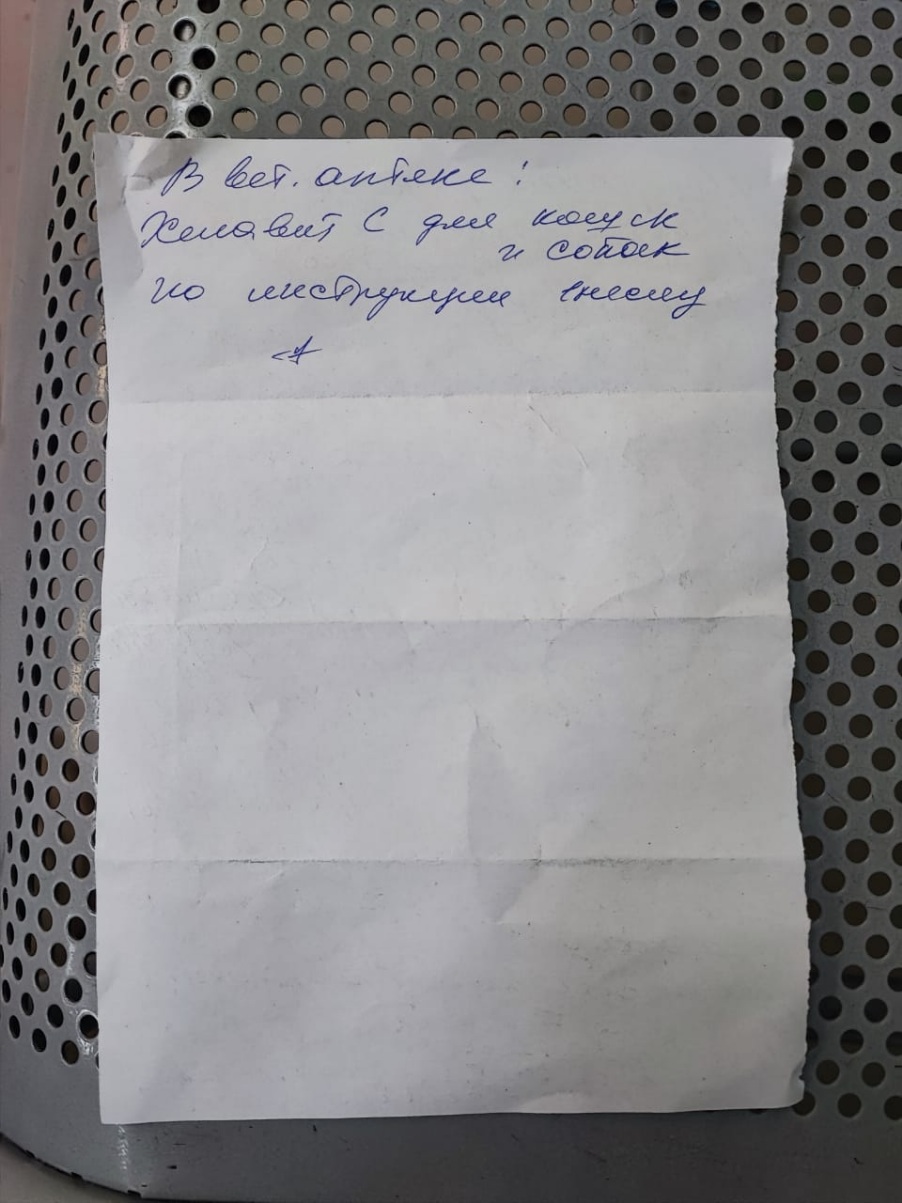 В вет. аптеке:
Хелавит С для кошек
и собак
по инструкции